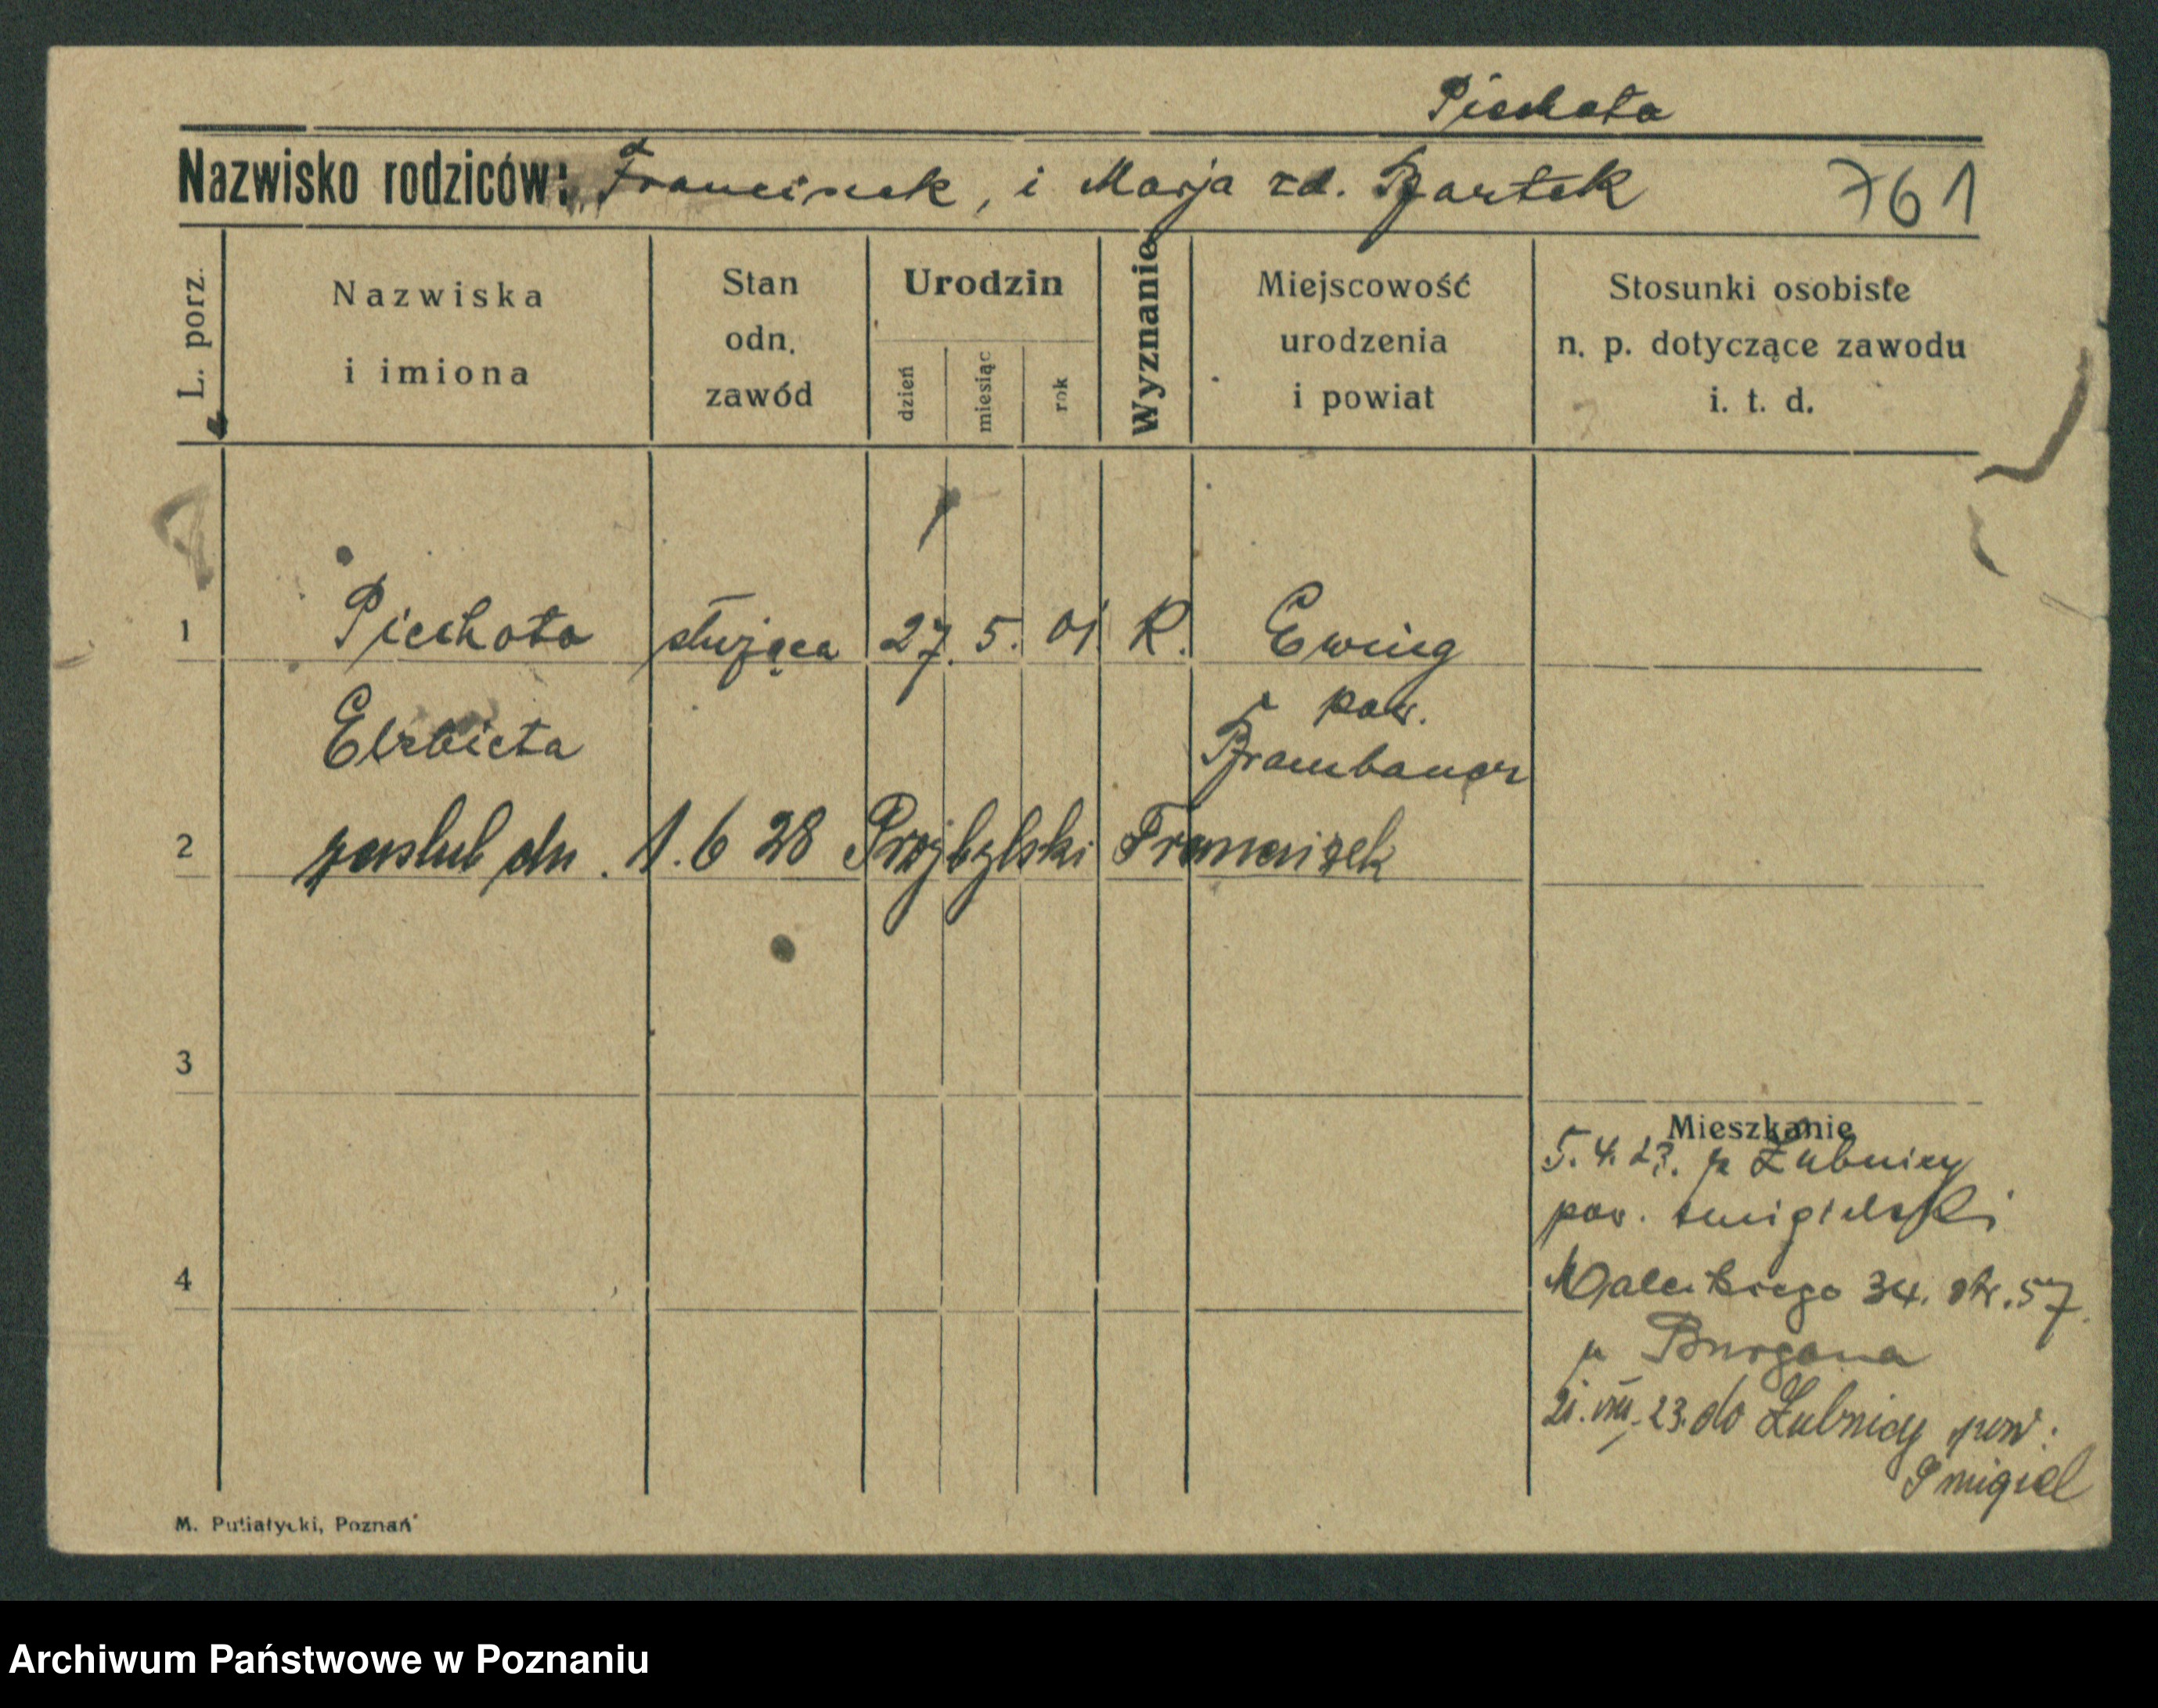 Piechota
Nazwisko rodziców: Franciszek, i Marja zd. Bartek 761
L. porz.
Nazwiska i imiona
Stan odn. zawód
Urodzin
dzień
miesiąc
rok
Wyznanie
Miejscowość urodzenia i powiat
Stosunki osobiste n. p. dotyczące zawodu i. t. d.
1 Piechota służąca 27. 5. 01. R. Ewing
pow.
Elzbieta Brambauer
2 zaslub dn. 1. 6 28 Przybylski Franciszek
3
Mieszkanie
5. 4. 23. z Łubnicy
pow. smigielski
4
Maleckiego 34. str. 57.
u Burgana
21. VIII. 23. do Łubnicy pow.
Smigiel
M. Putiatycki, Poznań
Archiwum Państwowe w Poznaniu